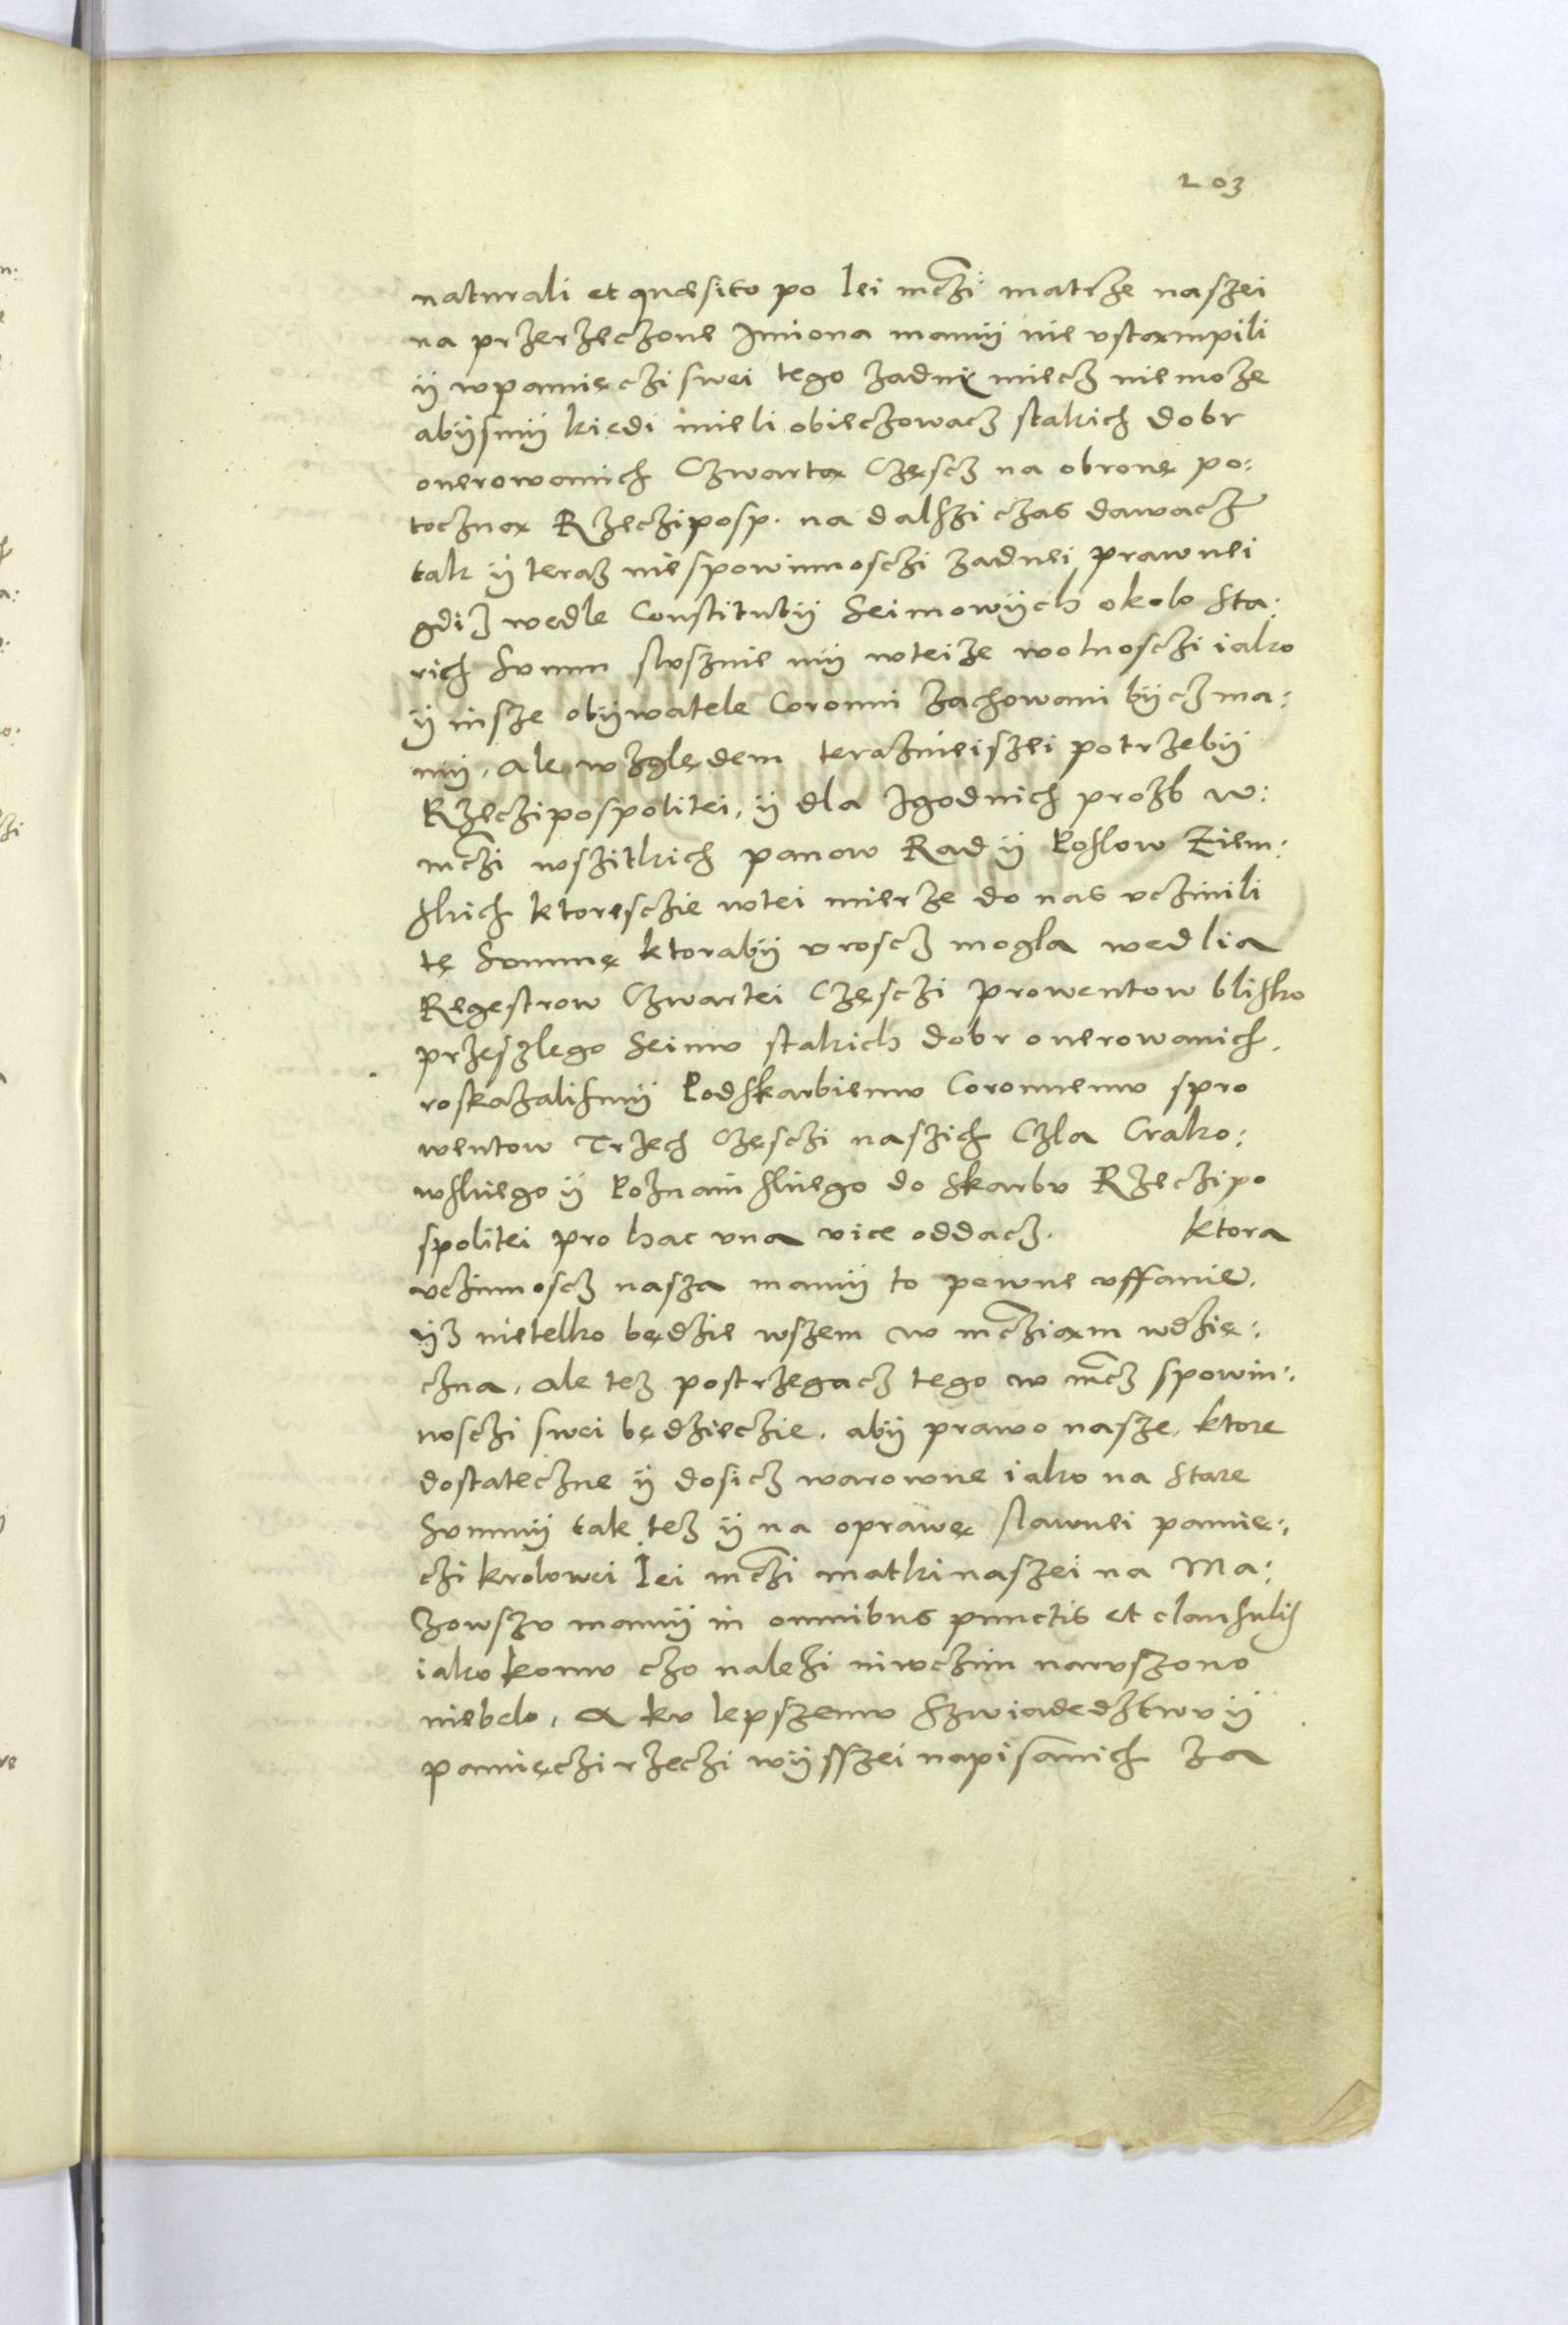 203
naturali et quæsito po Iei mczi matcze naszei
na przerzeczone Imiona mamÿ nie vstaxmpili
ÿ wpamięczi swei tego zadni miecz niemoze
abÿsmÿ kiedi mieli obieczowacz stakich dobr
onerowanich Czwartax Częscz na obronę po:
tocznax Rzecziposp. na dalszi czas dawacz
tak ÿ teraz niespowinnosczi zadnei prawnei
gdiz wedle Constitutÿ Seimowÿch okolo sta:
rich Summ slusznie mÿ wteize wolnosczi iako
ÿ insze obÿwatele Coronni zachowani bÿcz ma:
mÿ, ale względem teraznieiszei potrzebÿ
Rzeczipospolitei, ÿ dla Igodnich prozb w:
mczi wszitkich panow Rad ÿ Poslow Ziem:
skich ktoresczie wtei mierze do nas vczinili
tę Summę ktorabÿ vroscz mogla wedlia
Regestrow Czwartei Częsczi prowentow blisko
przeszlego Seimu stakich dobr onerowanich,
roskazalismÿ Podskarbiemu Coronnemu spro
wentow Trzech Częsczi naszich Czla Crako:
wskiego ÿ Poznanskiego do skarbu Rzeczipo
spolitei pro hac vna vice oddacz. ktora
vczinnoscz nasza mamÿ to pewne vffanie,
ÿz nietelko będzie wszem w mcziaxm wdzię:
czna, ale tez postrzegacz tego w mcz spowin:
nosczi swei będzieczie, abÿ prawo nasze, ktore
dostateczne ÿ dosicz warowne iako na stare
Summÿ tak tez ÿ na oprawę slawnei pamię:
czi krolowei Iei mczi matki naszei na Ma:
zowszu mamÿ in omnibus punctis et clausulis
iako komu czo nalezi niwczim naruszono
niebelo, A ku lepszemu szwiadedztwu ÿ
pamięczi rzeczi wÿsszei napisanich za